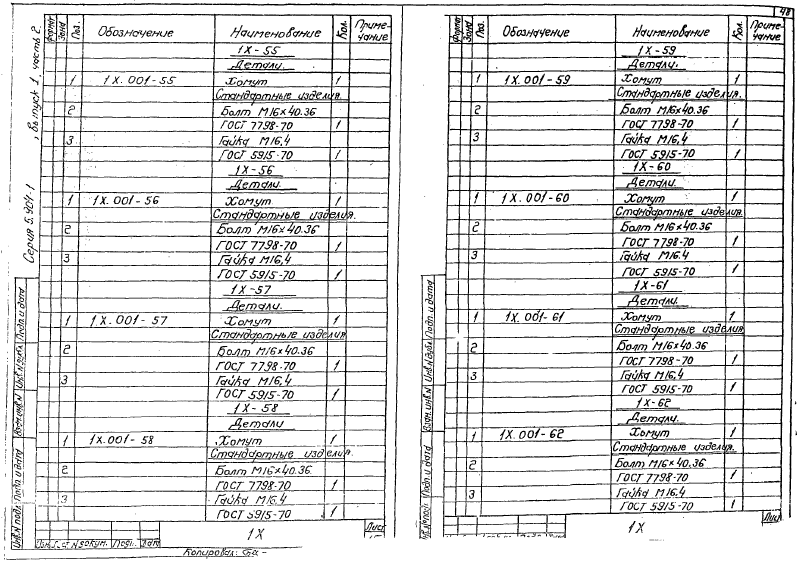 Формат Зона Поз. Обозначение Наименование Кол. Примечание
1Х-55
Детали.
1 1Х.001-55 Хомут 1
Стандартные изделия.
2 Болт М16×40.36
ГОСТ 7798-70 1
3 Гайка М16.4
ГОСТ 5915-70 1
1Х-56
Детали.
1 1Х.001-56 Хомут 1
Стандартные изделия.
2 Болт М16×40.36
ГОСТ 7798-70 1
3 Гайка М16.4
ГОСТ 5915-70 1
1Х-57
Детали.
1 1Х.001-57 Хомут 1
Стандартные изделия
2 Болт М16×40.36
ГОСТ 7798-70 1
3 Гайка М16.4
ГОСТ 5915-70 1
1Х-58
Детали
1 1Х.001-58 Хомут 1
Стандартные изделия.
2 Болт М16×40.36
ГОСТ 7798-70 1
3 Гайка М16.4
ГОСТ 5915-70 1
1Х
Лист
№ докум. Подп. Дата
Копировал:
Серия 5.904-1, Выпуск 1, часть 2.
Инв.№ подл. Подп. и дата Взам.инв.№ Инв.№ дубл. Подп. и дата
48
Формат Зона Поз. Обозначение Наименование Кол. Примечание
1Х-59
Детали.
1 1Х.001-59 Хомут 1
Стандартные изделия.
2 Болт М16×40.36
ГОСТ 7798-70 1
3 Гайка М16.4
ГОСТ 5915-70 1
1Х-60
Детали.
1 1Х.001-60 Хомут 1
Стандартные изделия.
2 Болт М16×40.36
ГОСТ 7798-70 1
3 Гайка М16.4
ГОСТ 5915-70 1
1Х-61
Детали.
1 1Х.001-61 Хомут 1
Стандартные изделия
2 Болт М16×40.36
ГОСТ 7798-70 1
3 Гайка М16.4
ГОСТ 5915-70 1
1Х-62
Детали.
1 1Х.001-62 Хомут 1
Стандартные изделия.
2 Болт М16×40.36
ГОСТ 7798-70 1
3 Гайка М16.4
ГОСТ 5915-70 1
1Х
Лист
Инв.№ подл. Подп. и дата Взам.инв.№ Инв.№ дубл. Подп. и дата